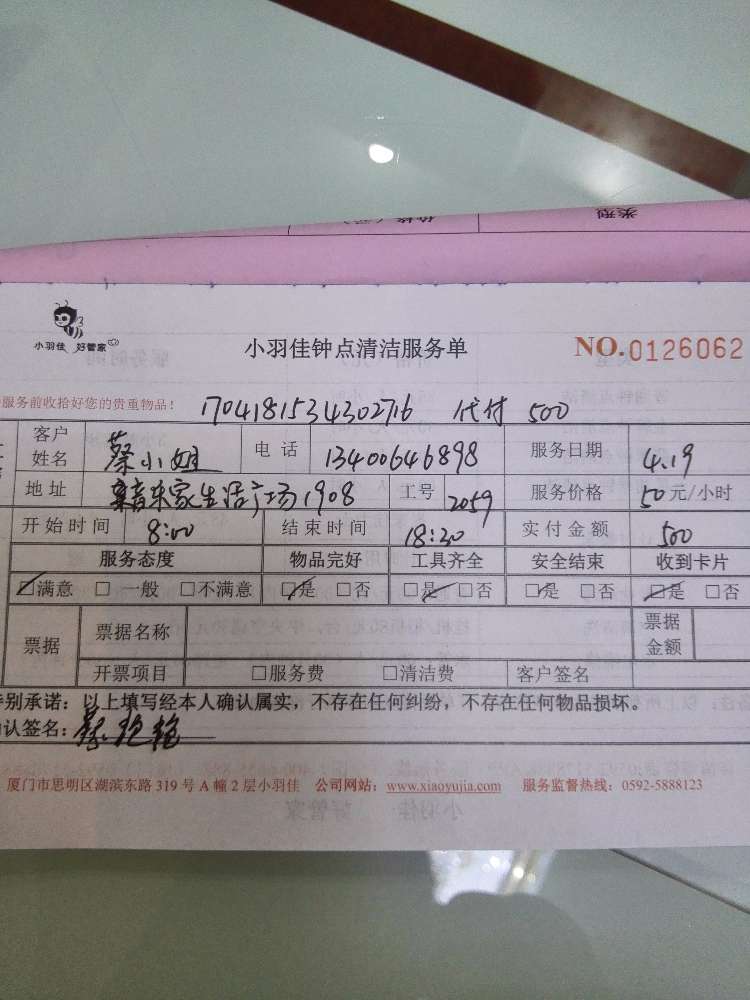 小羽佳 好管家
小羽佳钟点清洁服务单
NO.0126062
服务前收拾好您的贵重物品！
1704181534302716 代付 500
客户姓名 蔡小姐 电话 13400646898 服务日期 4.19
地址 家生活广场1908 工号 2059 服务价格 50元/小时
开始时间 8:00 结束时间 18:30 实付金额 500
服务态度 物品完好 工具齐全 安全结束 收到卡片
☑满意 □一般 □不满意 ☑是 □否 ☑是 □否 ☑是 □否 ☑是 □否
票据 票据名称 票据金额
开票项目 □服务费 □清洁费 客户签名
特别承诺：以上填写经本人确认属实，不存在任何纠纷，不存在任何物品损坏。
确认签名：蔡
厦门市思明区湖滨东路319号A幢2层小羽佳 公司网站：www.xiaoyujia.com 服务监督热线：0592-5888123